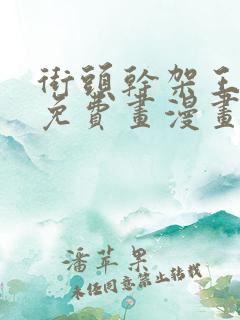 街頭幹架王
免費畫漫畫
潘苹果
未经同意禁止转载